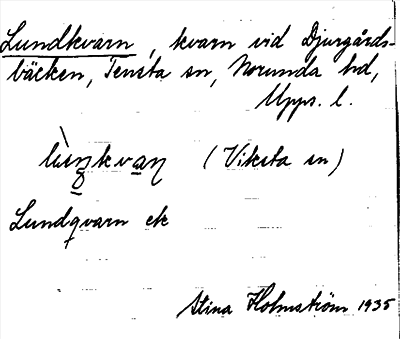 Lundkvarn, kvarn vid Djurgårds-
bäcken, Tensta sn, Norunda hd,
Upps. l.
(Viksta sn)
Lundqvarn ek
Stina Holmström 1935